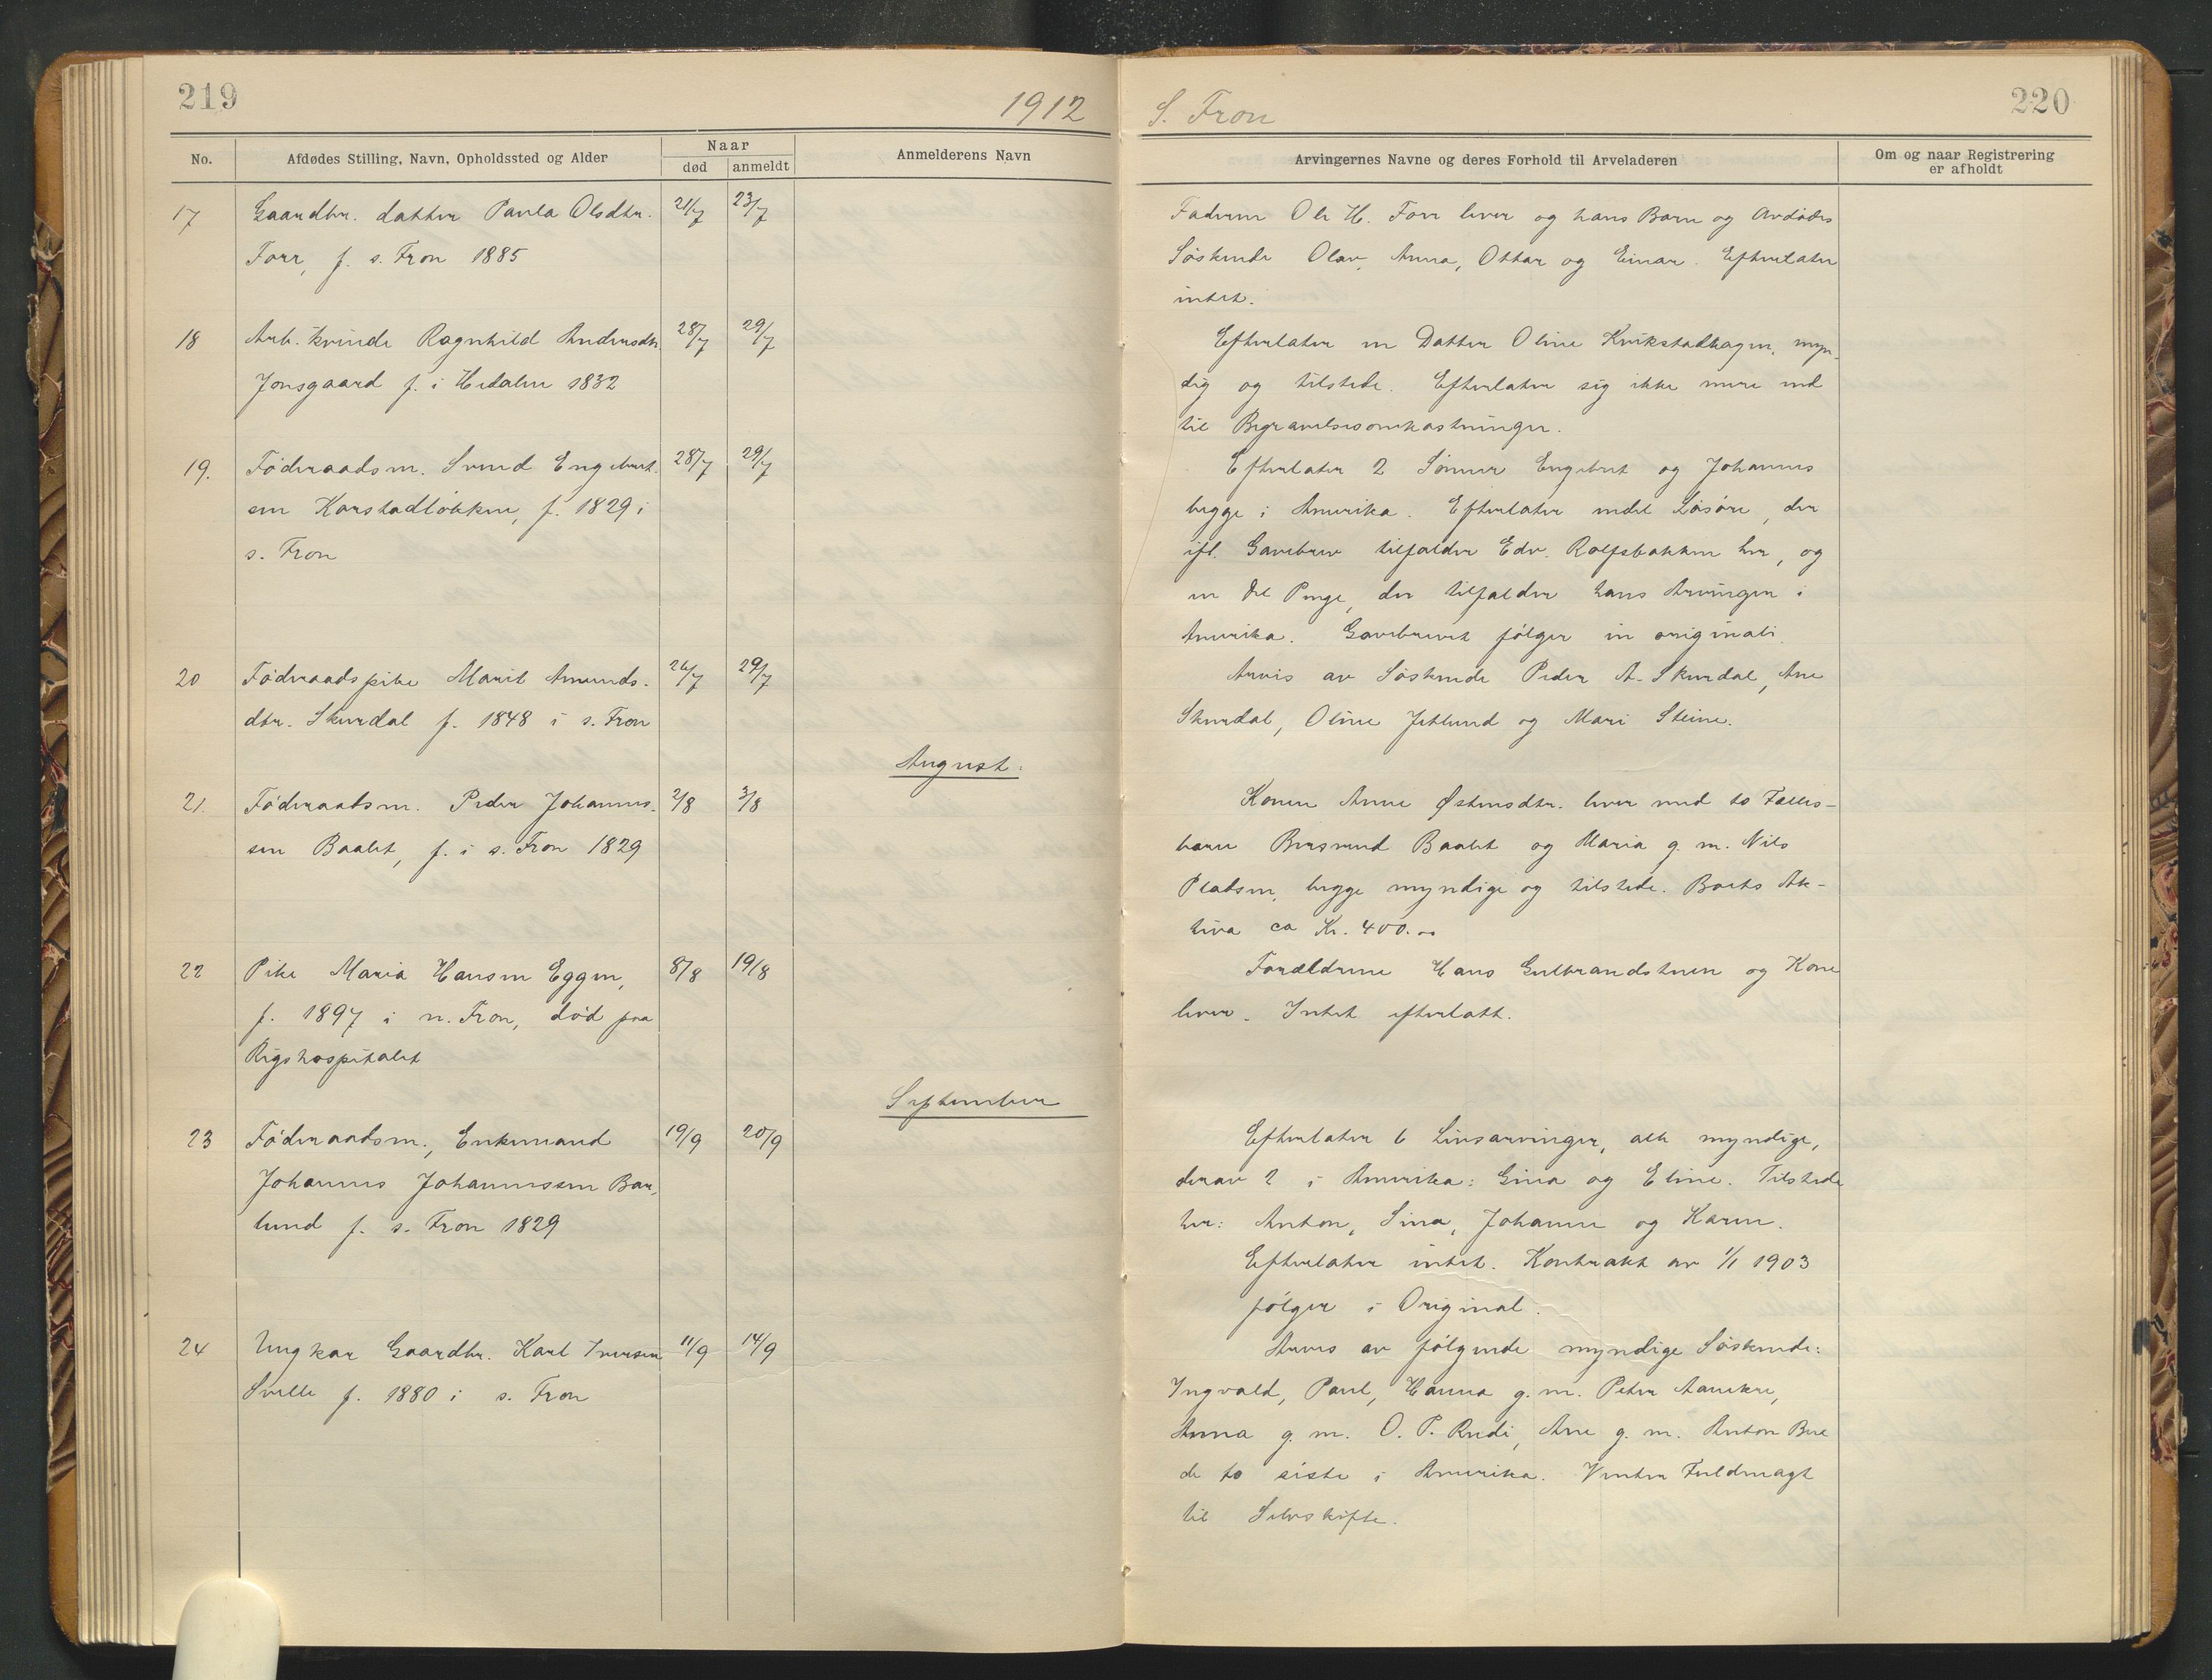 219
1912
No.
Afdødes Stilling, Navn, Opholdssted og Alder
Naar
død
anmeldt
Anmelderens Navn
17
Gaardbr. datter Paula Olsdtr.
21/7
23/7
Forr, f. s. Fron 1885
18
Arb. kvinde Ragnhild Andersdtr.
28/7
29/7
Jonsgaard f. i Hedalen 1832
19.
Føderaadsm. Svend Engebret-
28/7
29/7
sen Korstadløkken, f. 1829 i
s. Fron
20
Føderaadspike Marit Amunds-
26/7
29/7
dtr. Skurdal f. 1848 i s. Fron
August.
21.
Føderaadsm. Peder Johannes-
2/8
3/8
sen Baalet, f. i s. Fron 1829
22
Pike Maria Hansen Eggen,
8/8
19/8
f. 1897 i n. Fron, død paa
Rigshospitalet
September
23
Føderaadsm., Enkemand
19/9
20/9
Johannes Johannessen Bar-
lund f. s. Fron 1829
24
Ungkar Gaardbr. Karl Iversen
11/9
14/9
Svelle f. 1880 i s. Fron
S. Fron
220
Arvingernes Navne og deres Forhold til Arveladeren
Om og naar Registrering
er afholdt
Faderen Ole H. Forr lever og hans Barn og Avdødes
Søskende Olav, Anna, Ottar og Einar. Efterlater
intet.
Efterlater en Datter Oline Kvikstadhagen, myn-
dig og tilstede. Efterlater sig ikke mere end
til Begravelsesomkostninger.
Efterlater 2 Sønner Engebret og Johannes
begge i Amerika. Efterlater endel Løsøre, der
ifl. Gavebrev tilfalder Edv. Rolfsbakken her, og
en Del Penge, der tilfalder hans Arvinger i
Amerika. Gavebrevet følger in originali.
Arves av Søskende Peder A. Skurdal, Ane
Skurdal, Oline Jetlund og Mari Steine.
Konen Anne Østensdtr. lever med to Fælles-
barn Bersvend Baalet og Maria g. m. Nils
Pladsen, begge myndige og tilstede. Boets Ak-
tiva ca Kr. 400.00
Forældrene Hans Gulbrandstuen og Kone
lever. Intet efterlatt.
Efterlater 6 Livsarvinger, alle myndige,
derav 2 i Amerika: Gina og Eline. Tilstede
her: Anton, Sina, Johanne og Karen.
Efterlater intet. Kontrakt av 1/1 1903
følger i Original.
Arves av følgende myndige Søskende:
Ingvald, Paul, Hanna g. m. Peter
Anna g. m. O. P. Rudi, Ane g. m. Anton Bue
de to siste i Amerika. Venter Fuldmagt
til Selvskifte.